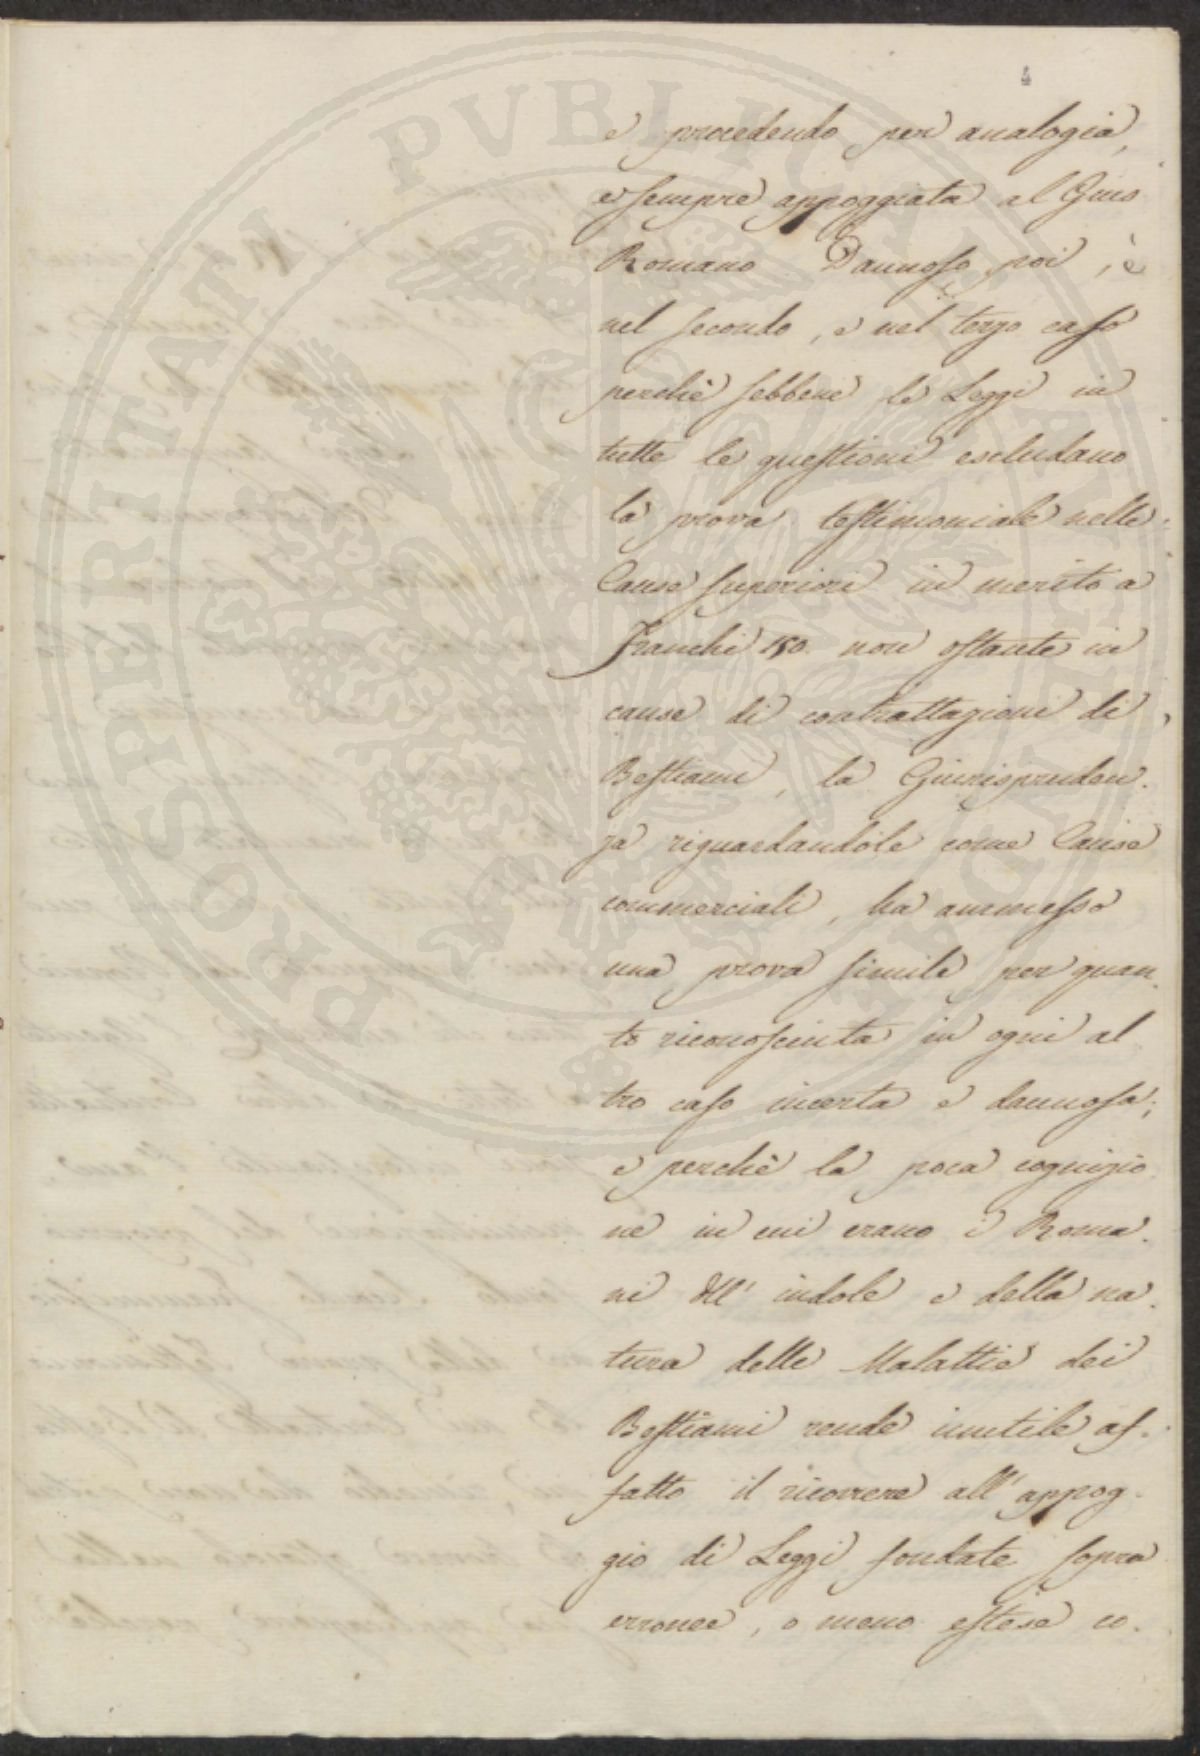 4
e procedendo per analogia,
e sempre appoggiata al Gius
Romano Dannoso poi, è
nel secondo, e nel terzo caso
perchè sebbene le Leggi in
tutte le questioni escludano
la prova testimoniale nelle
Cause superiori in merito a
Franchi 150. non ostante in
cause di contrattazioni di
Bestiami, la Giurispruden-
za riguardandole come Cause
commerciali, ha ammesso
una prova simile per quan-
to riconosciuta in ogni al
tro caso incerta e dannosa;
e perchè la poca cognizio
ne in cui erano i Roma-
ni dell' indole e della na-
tura delle Malattie dei
Bestiami rende inutile af-
fatto il ricorrere all' appog-
gio di Leggi fondate sopra
erronee, o meno estese co-
PROSPERITATI PVBLICAE AVGENDAE